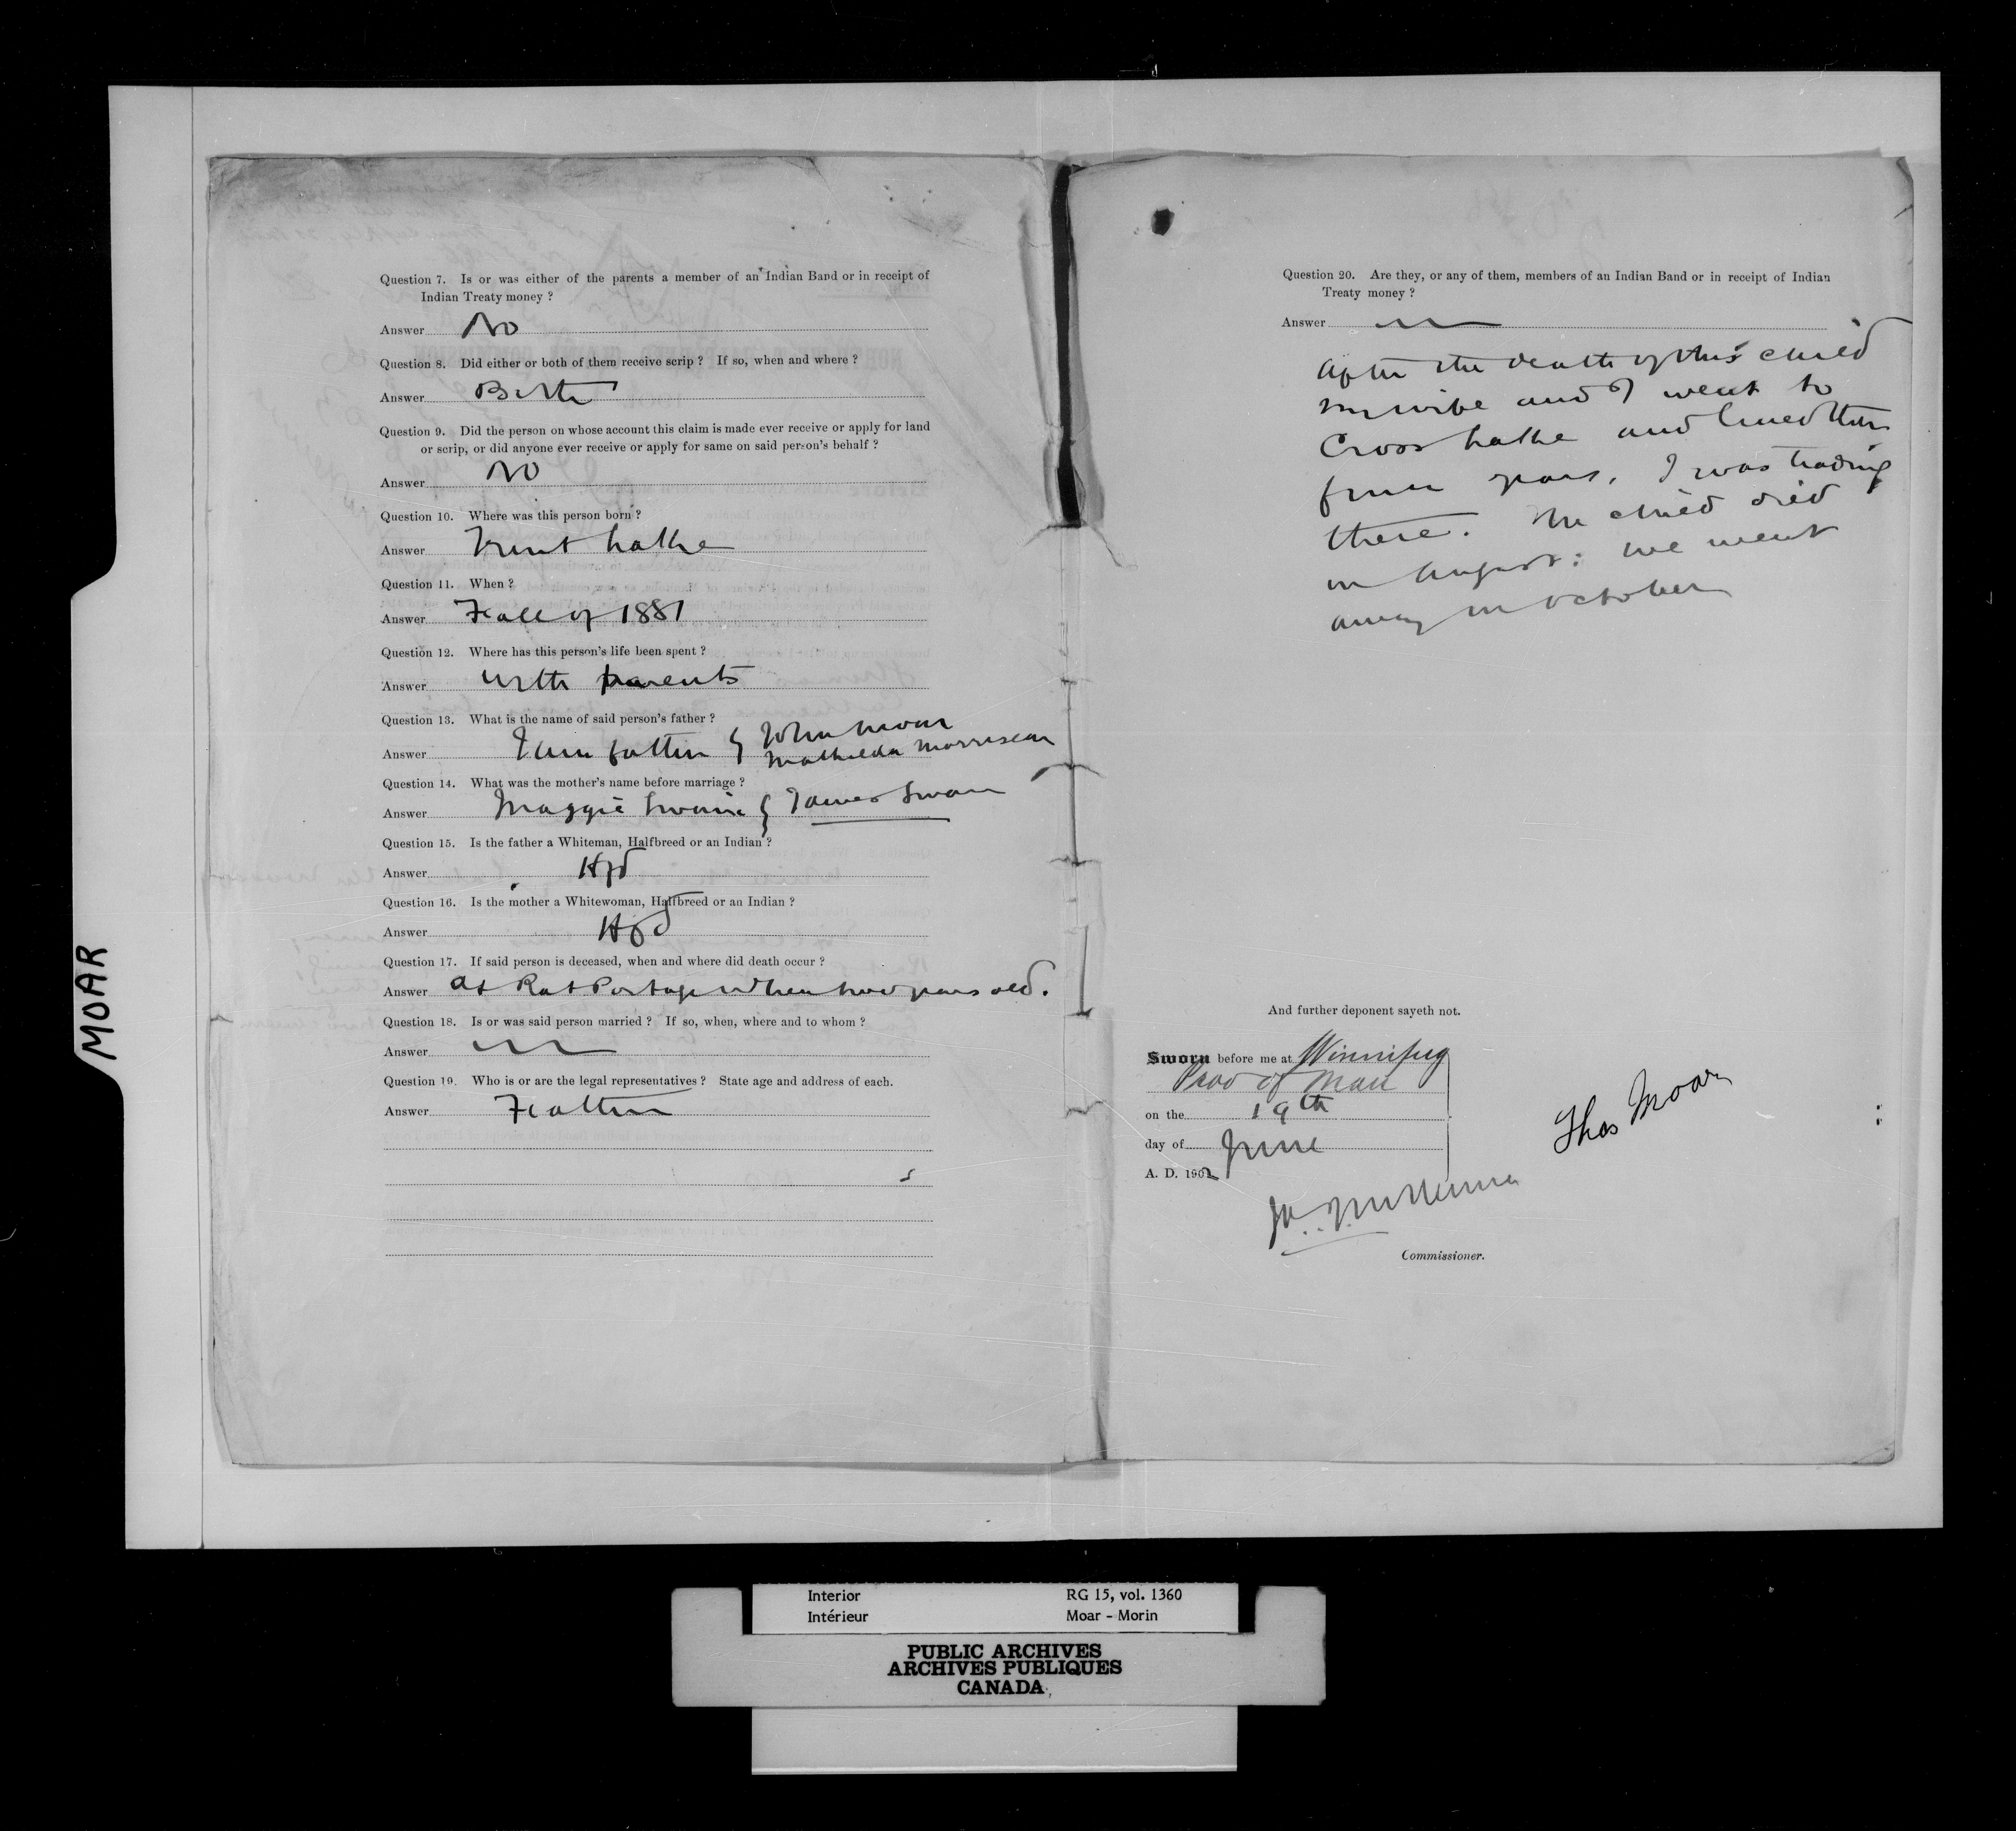 Question 7. Is or was either of the parents a member of an Indian Band or in receipt of
Indian Treaty money ?
Answer No
Question 8. Did either or both of them receive scrip ? If so, when and where ?
Answer Both
Question 9. Did the person on whose account this claim is made ever receive or apply for land
or scrip, or did anyone ever receive or apply for same on said person's behalf ?
Answer No
Question 10. Where was this person born ?
Answer Trout Lake
Question 11. When ?
Answer Fall of 1881
Question 12. Where has this person's life been spent ?
Answer with parents
Question 13. What is the name of said person's father ?
Answer I am father John Moar
Mathilda Morrisseau
Question 14. What was the mother's name before marriage ?
Answer Maggie Swain James Swain
Question 15. Is the father a Whiteman, Halfbreed or an Indian ?
Answer Hfd
Question 16. Is the mother a Whitewoman, Halfbreed or an Indian ?
Answer Hfd
Question 17. If said person is deceased, when and where did death occur ?
Answer at Rat Portage when two years old.
Question 18. Is or was said person married ? If so, when, where and to whom ?
Answer
Question 19. Who is or are the legal representatives ? State age and address of each.
Answer Father
Question 20. Are they, or any of them, members of an Indian Band or in receipt of Indian
Treaty money ?
Answer
After the death of this child
my wife and I went to
Cross Lake and lived there
four years. I was trading
there. The child died
in August: we went
away in October
And further deponent sayeth not.
Sworn before me at Winnipeg
Prov of Man
on the 19th
day of June
A. D. 1902
Thos Moar
Commissioner.
MOAR
Interior RG 15, vol. 1360
Intérieur Moar - Morin
PUBLIC ARCHIVES
ARCHIVES PUBLIQUES
CANADA